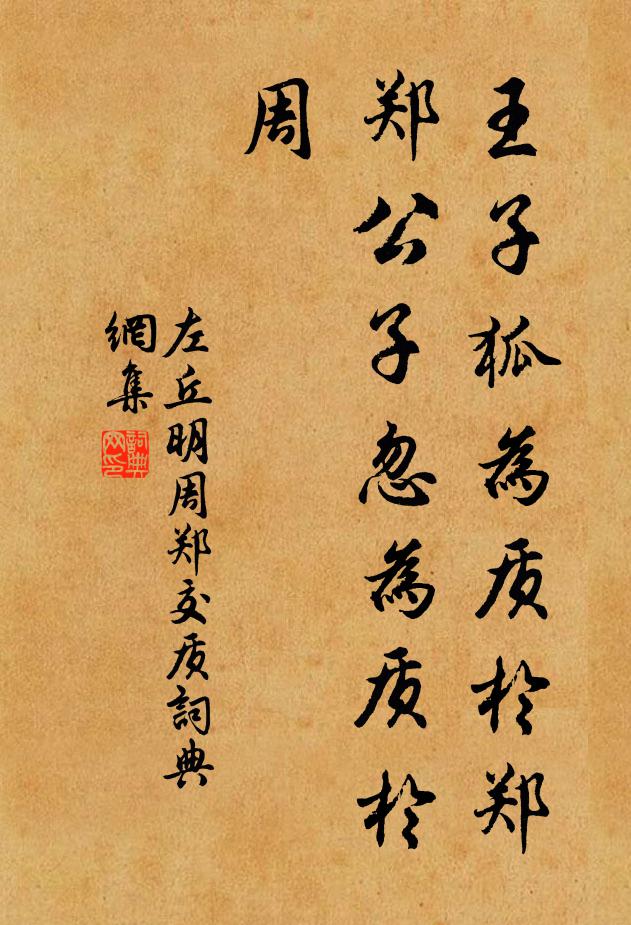 王子狐為质於郑
郑公子忽為质於
周
左丘明周郑交质詞典
網集
詞典
网印